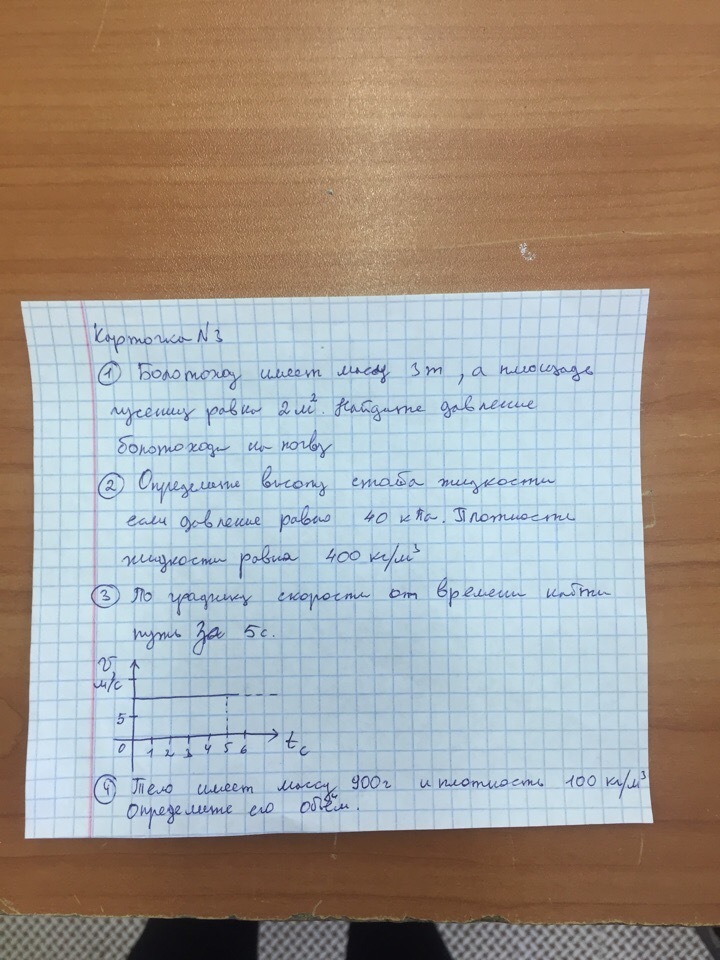 Карточка N3
① Болотоход имеет массу 3т, а площадь
гусениц равна 2м². Найдите давление
болотохода на почву
② Определите высоту столба жидкости
если давление равно 40 кПа. Плотность
жидкости равна 400 кг/м³
③ По графику скорости от времени найти
путь за 5с.
v
м/с
5
0 1 2 3 4 5 6 t с
④ Тело имеет массу 900г и плотность 100 кг/м³
Определите его объём.